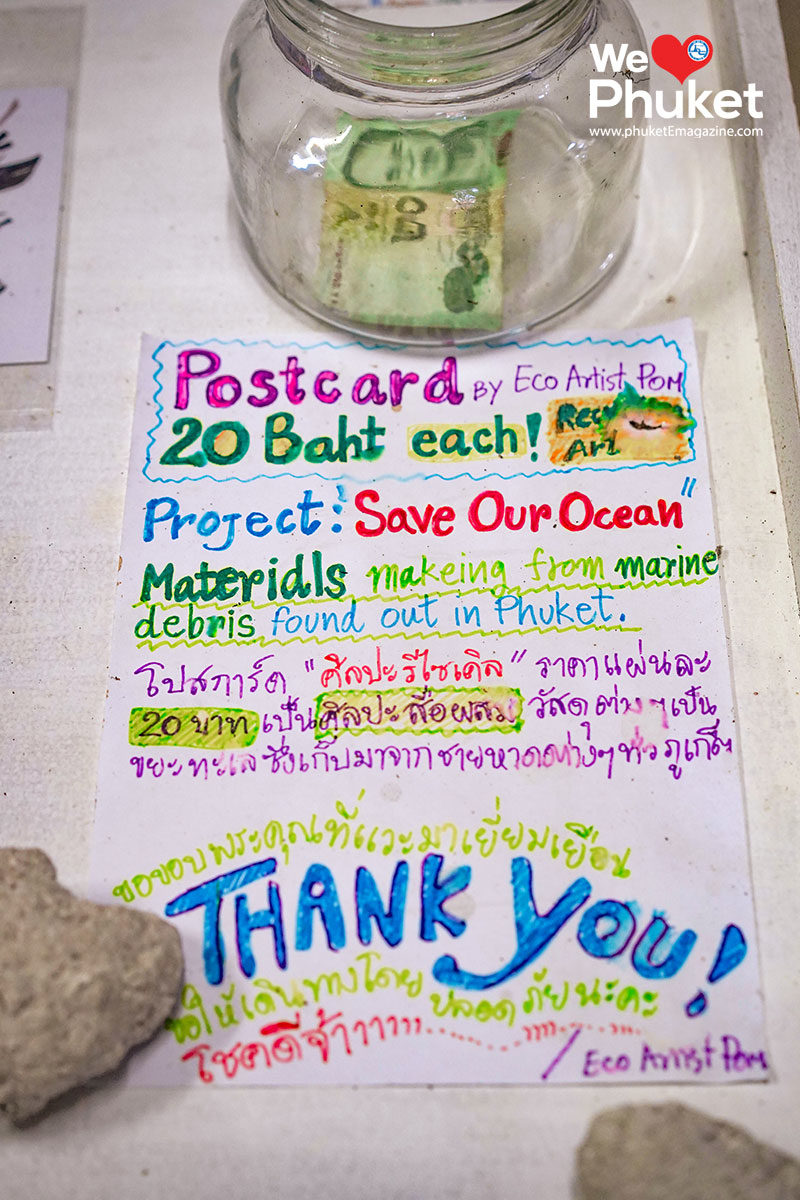 We
Phuket
www.phuketEmagazine.com
20
Postcard BY Eco Artist POM
20 Baht each!
Art
Project: "Save Our Ocean"
Materidls makeing from marine
debris found out in Phuket.
โปสการ์ด "ศิลปะรีไซเคิล" ราคาแผ่นละ
20 บาท เป็นศิลปะสื่อผสม วัสดุต่างๆเป็น
ขยะทะเลซึ่งเก็บมาจากชายหาดต่างๆทั่วภูเก็ต
ขอขอบพระคุณที่แวะมาเยี่ยมเยือน
THANK YOU!
ขอให้เดินทางโดยปลอดภัยนะคะ
โชคดีจ้าาาาาา
/Eco Artist POM